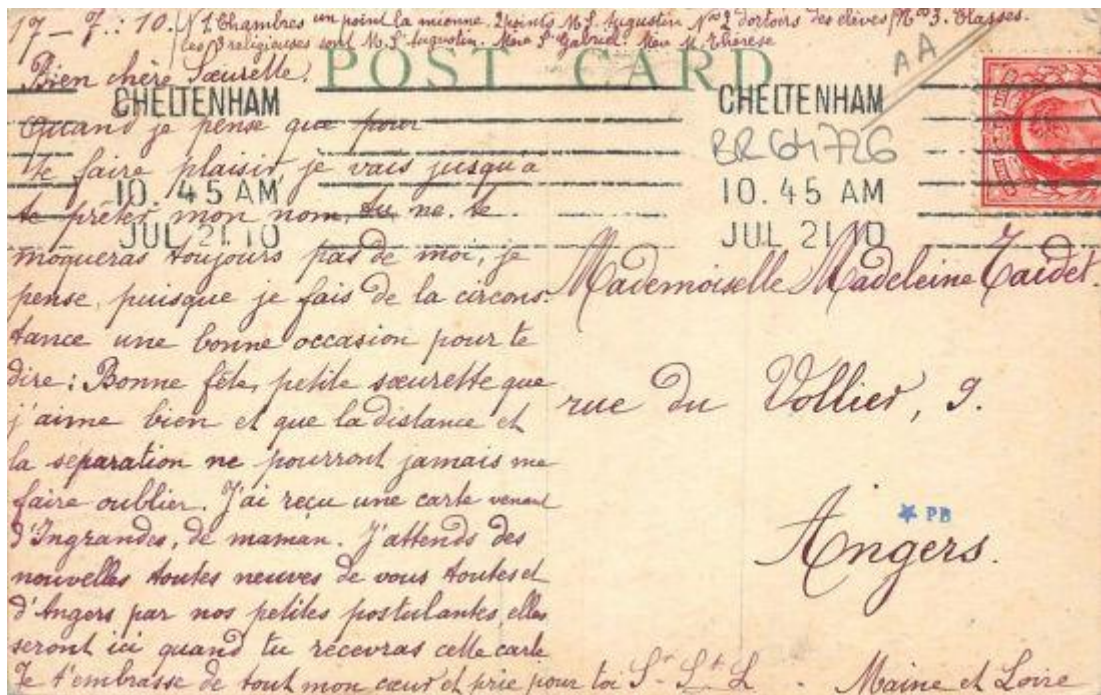 17-7.:10.
N°1 Chambres un point la mienne. 2 points M. St Augustin N°2 dortoirs des élèves N°3. Classes.
Les 3 religieuses sont M. St Augustin. Mère St Gabriel. Mère M. Thérèse
POST CARD
AA
Bien chère Sœurette.
CHELTENHAM
10.45 AM
JUL 21.10
CHELTENHAM
BR 61726
10.45 AM
JUL 21.10
Quand je pense que pour
te faire plaisir, je vais jusqu'a
te prêter mon nom, tu ne te
moqueras toujours pas de moi, je
pense, puisque je fais de la circons:
tance une bonne occasion pour te
dire: Bonne fête, petite sœurette que
j'aime bien et que la distance et
la séparation ne pourront jamais me
faire oublier. J'ai reçu une carte venant
d'Ingrandes, de maman. J'attends des
nouvelles toutes neuves de vous toutes et
d'Angers par nos petites postulantes, elles
seront ici quand tu recevras cette carte
Je t'embrasse de tout mon cœur et prie pour toi Sr St L
Mademoiselle Madeleine Taudet.
rue du Vollier, 9.
Angers.
PB
Maine et Loire